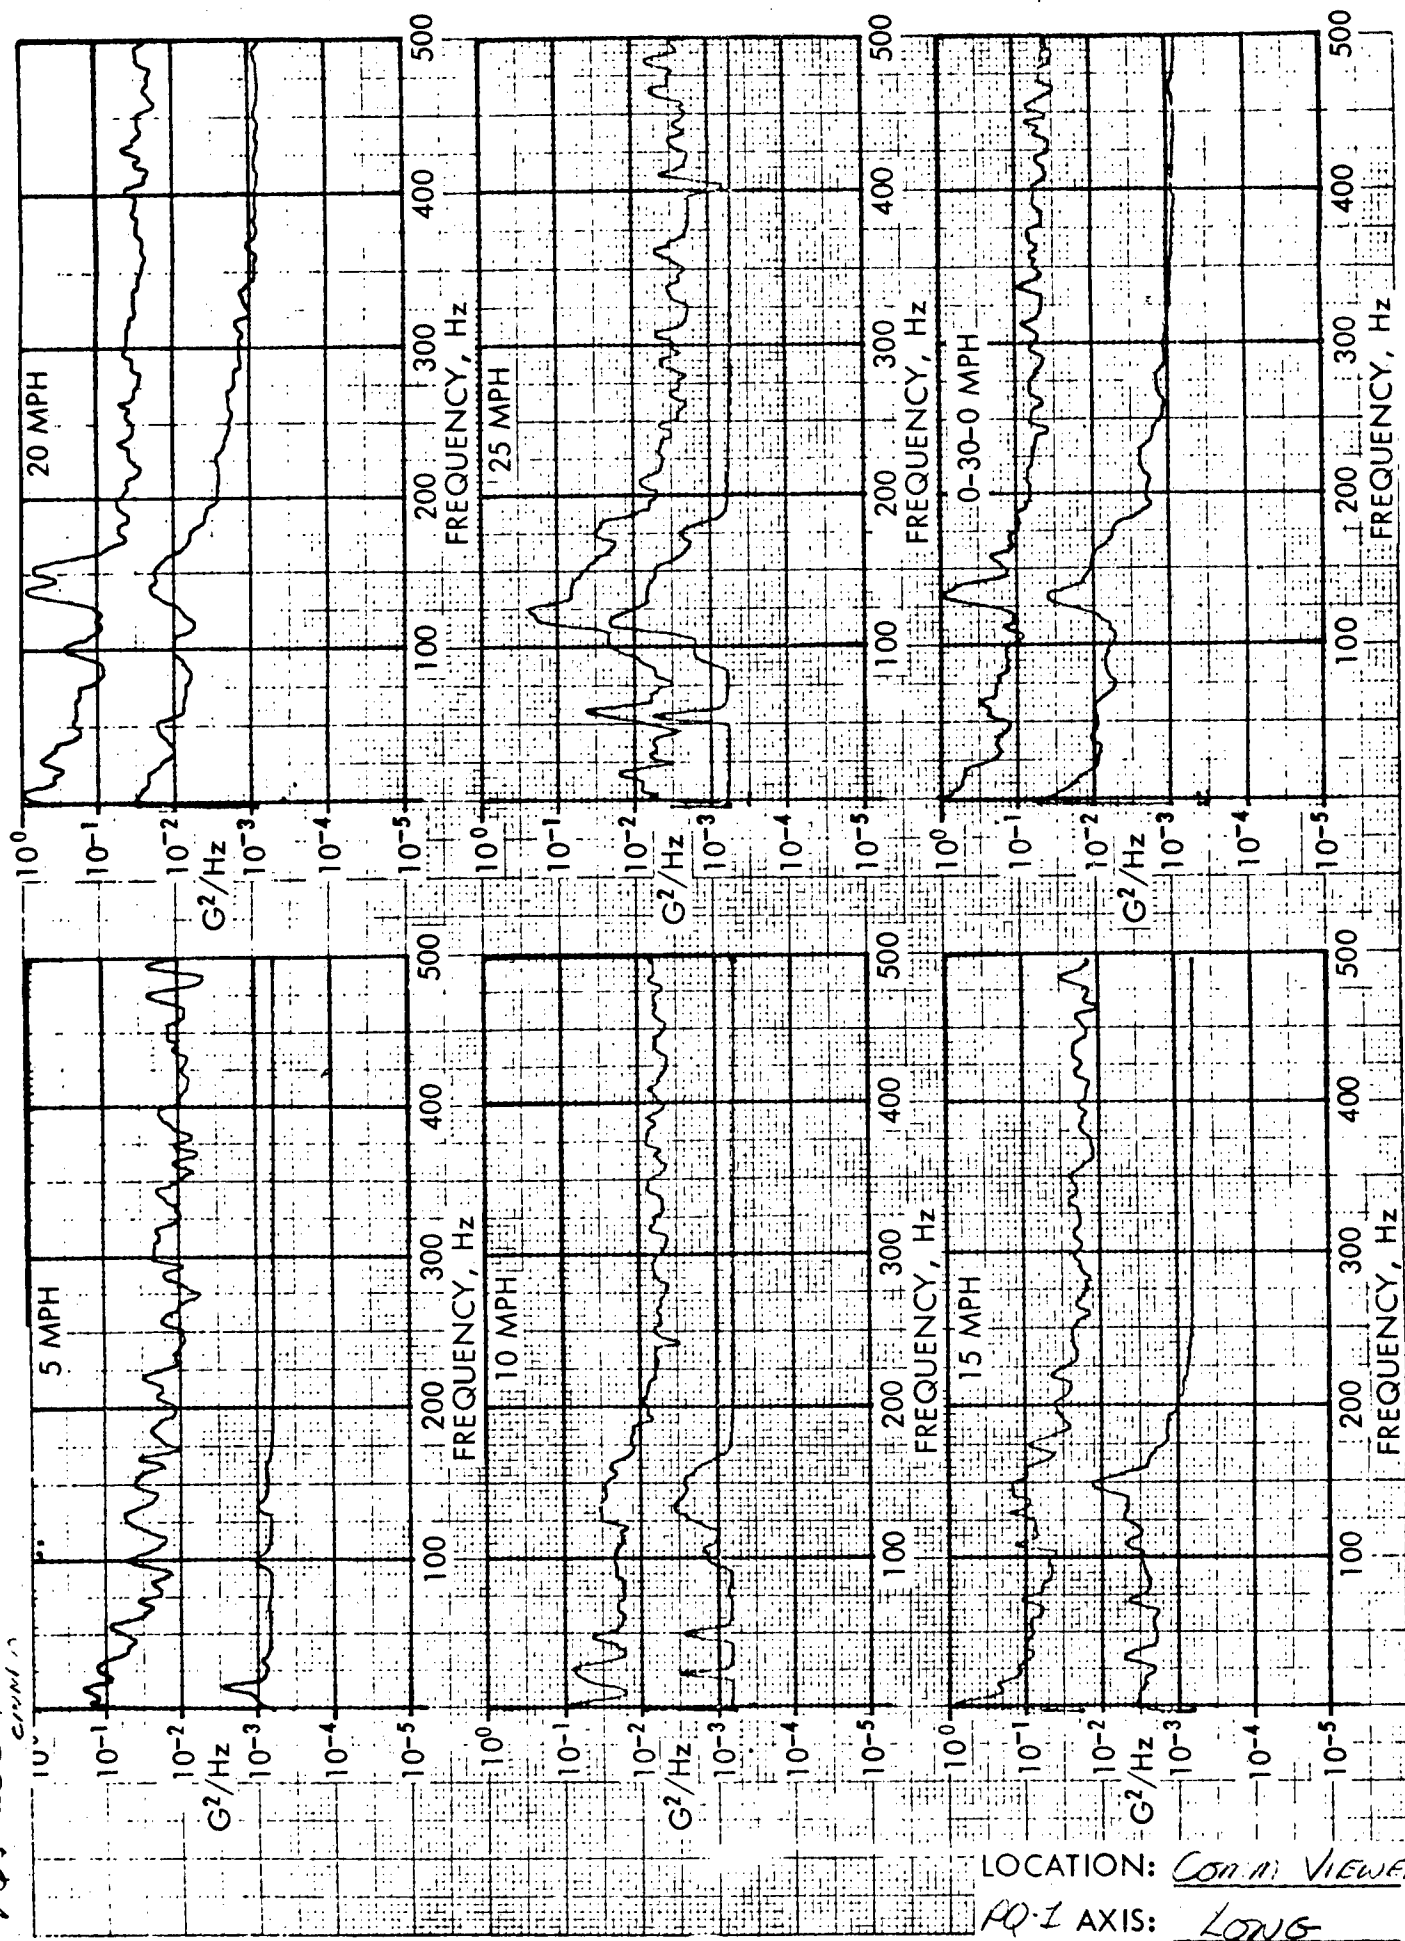 5 MPH
10⁻¹
10⁻²
G²/Hz
10⁻³
10⁻⁴
10⁻⁵
100
200
300
400
500
FREQUENCY, Hz
20 MPH
10⁰
10⁻¹
10⁻²
G²/Hz
10⁻³
10⁻⁴
10⁻⁵
100
200
300
400
500
FREQUENCY, Hz
10 MPH
10⁰
10⁻¹
10⁻²
G²/Hz
10⁻³
10⁻⁴
10⁻⁵
100
200
300
400
500
FREQUENCY, Hz
25 MPH
10⁰
10⁻¹
10⁻²
G²/Hz
10⁻³
10⁻⁴
10⁻⁵
100
200
300
400
500
FREQUENCY, Hz
15 MPH
10⁰
10⁻¹
10⁻²
G²/Hz
10⁻³
10⁻⁴
10⁻⁵
100
200
300
400
500
FREQUENCY, Hz
0-30-0 MPH
10⁰
10⁻¹
10⁻²
G²/Hz
10⁻³
10⁻⁴
10⁻⁵
100
200
300
400
500
FREQUENCY, Hz
LOCATION: COMM VIEWE
PQ-1 AXIS: LONG